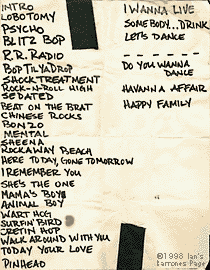 INTRO
LOBOTOMY
PSYCHO
BLITZ BOP
R.R. RADIO
BOP TIL YA DROP
SHOCK TREATMENT
ROCK-N-ROLL HIGH
SEDATED
BEAT ON THE BRAT
CHINESE ROCKS
BONZO
MENTAL
SHEENA
ROCKAWAY BEACH
HERE TODAY, GONE TOMORROW
I REMEMBER YOU
SHE'S THE ONE
MAMA'S BOY
ANIMAL BOY
WART HOG
SURFIN' BIRD
CRETIN HOP
WALK AROUND WITH YOU
TODAY YOUR LOVE
PINHEAD
I WANNA LIVE
SOMEBODY...DRINK
LET'S DANCE
DO YOU WANNA
DANCE
HAVANNA AFFAIR
HAPPY FAMILY
©1998 Ian's
Ramones Page